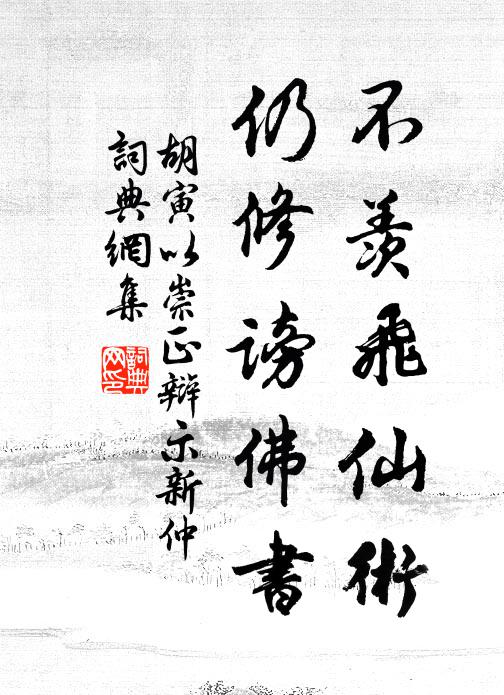 不羨飛仙術
仍修謗佛書
胡寅以崇正辯示新仲
詞典網集
詞典
网印